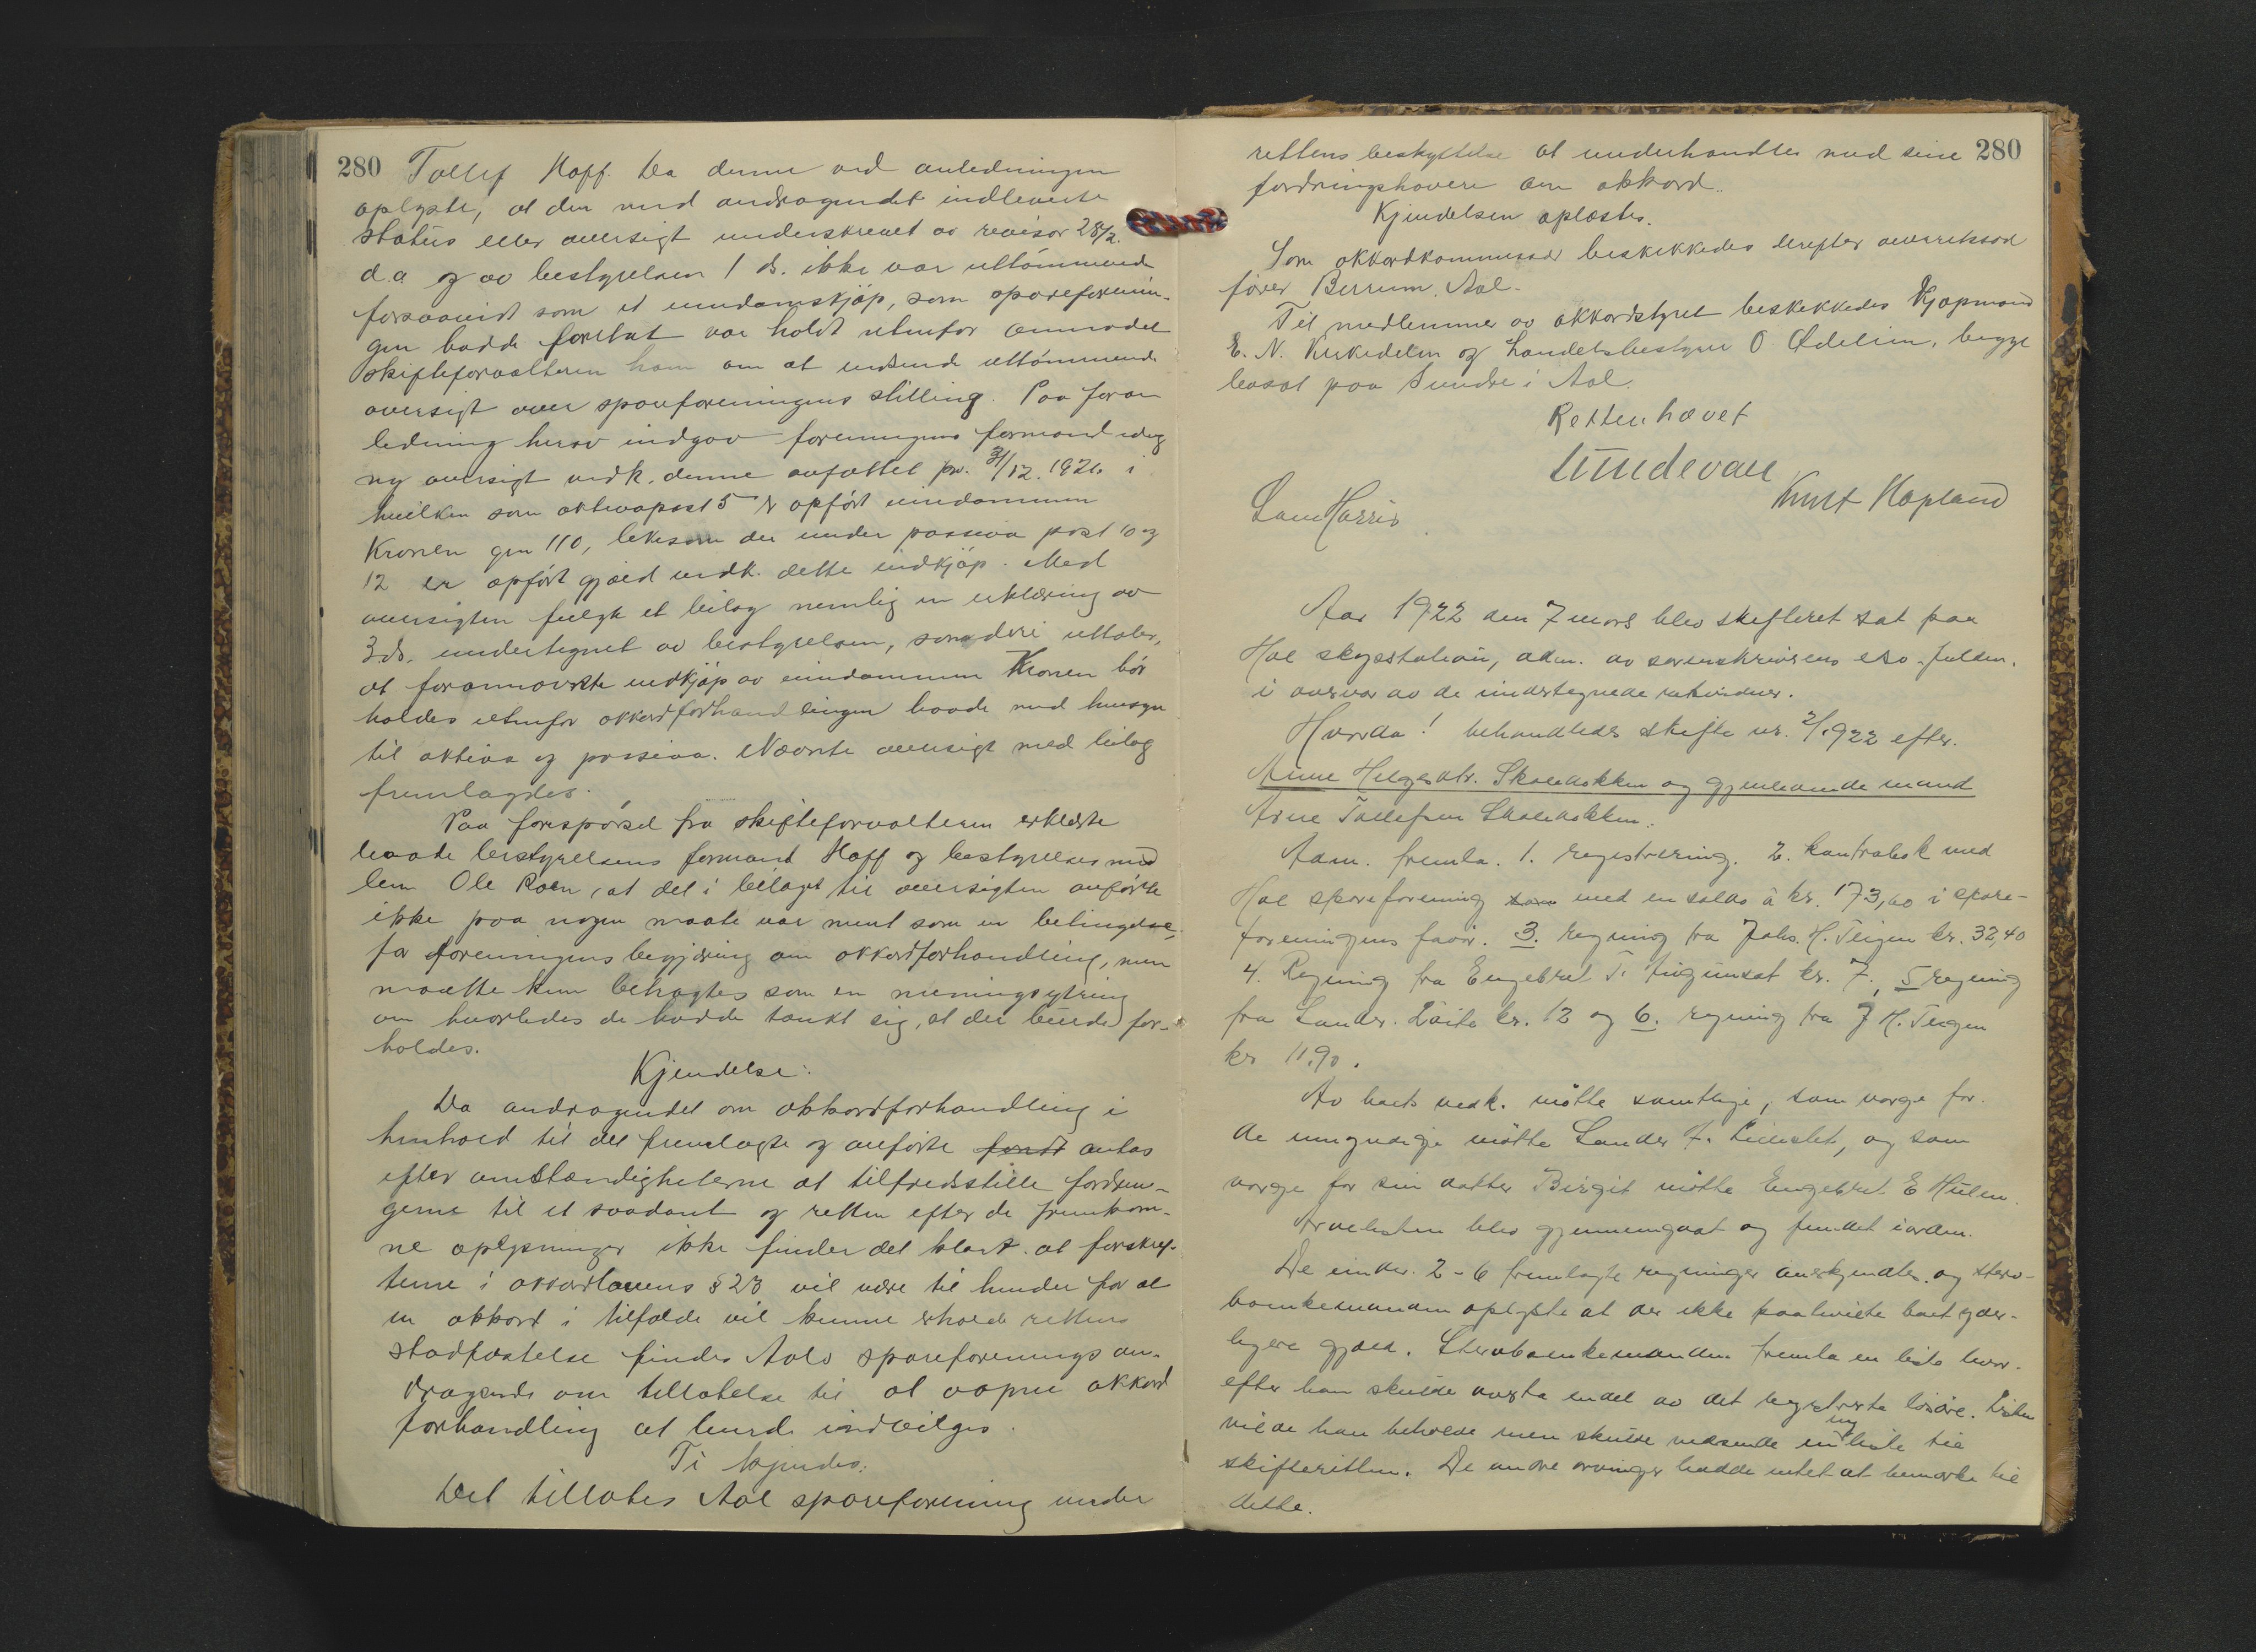 280 Tollef Hoff. Da denne ved anledningen
oplyste, at den med andragendet indleverte
status eller oversigt underskrevet av revisor 28/2.
d.a. og av bestyrelsen 1 ds. ikke var uttömmende
forsaavidt som et eiendomskjöp, som spareforenin-
gen hadde foretat var holdt utenfor anmodet
skifteforvalteren ham om at indsende uttömmende
oversigt over spareforeningens stilling. Paa foran
ledning herav indgav foreningens formand idag
ny oversigt vedk. denne avfattet pr. 31/12. 1921. i
hvilken som aktivapost 5 er opfört eiendommen
Kronen gm 110, likesom der under passiva post 10 og
12 er opfört gjæld vedk. dette indkjöp. Med
oversigten fulgte et bilag nemlig en erklæring av
3 ds. undertegnet av bestyrelsen, som deri uttaler,
at forannævnte indkjöp av eiendommen Kronen bör
holdes utenfor akkordforhandlingen baade med hensyn
til aktiva og passiva. Nævnte oversigt med bilag
fremlagdes.
Paa forespörsel fra skifteforvalteren erklærte
baade bestyrelsens formand Hoff og bestyrelsesmed
lem Ole Roen, at det i bilaget til oversigten anförte
ikke paa nogen maate var ment som en betingelse,
for foreningens begjæring om akkordforhandling, men
maatte kun betragtes som en meningsytring
om hvorledes de hadde tænkt sig, at der burde for-
holdes.
Kjendelse:
Da andragendet om akkordforhandling i
henhold til det fremlagte og anförte antas
efter omstændigheterne at tilfredsstille fordrin-
gerne til et saadant og retten efter de fremkom-
ne oplysninger ikke finder det klart at forskrif-
terne i akkordlovens § 23 vil være til hinder for at
en akkord i tilfælde vil kunne erholde rettens
stadfæstelse findes Aals spareforenings an-
dragende om tillatelse til at aapne akkord
forhandling at burde indvilges.
Ti kjendes:
Det tillates Aal spareforening under
rettens beskyttelse at underhandle med sine 280
fordringshavere om akkord.
Kjendelsen oplæstes.
Som akkordkommissær beskikkedes derefter overretssak
förer Berrum, Aal.
Til medlemmer av akkordstyret beskikkedes Kjöpmand
E. N. Kirkedelen og handelsbestyrer O. Ødelien, begge
bosat paa Sundre i Aal.
Retten hævet
Lindevall
Lars Harris Knut Hapland
Aar 1922 den 7 mars blev skifteret sat paa
Hol skysstation, adm. av sorenskriverens eso. fuldm.
i overvær av de undertegnede retsvidner.
Hvorda! behandledes skifte nr. 2/1922 efter.
Anne Helgesdtr. Skolebakken og gjenlevende mand
Arne Tollefsen Skolebakken.
Adm. fremla. 1. registrering. 2. kontrabok med
Hol spareforening som med en saldo à kr. 173,60 i spare-
foreningens favör. 3. regning fra Johs. H. Teigen kr. 32,40
4. Regning fra Engebret T. kr. 7., 5 regning
fra Sander. kr. 12 og 6. regning fra J. H. Teigen
kr 11.90.
Av boets vedk. mötte samtlige, som verge for
de umyndige mötte Sander og som
verge for sin datter Birgit mötte Engebret E Hulen.
Arvelisten blev gjennemgaat og fundet iorden.
De under. 2-6 fremlagte regninger anerkjendtes. og sterv-
boenkemanden oplyste at der ikke paahvilte boet yder-
ligere gjæld. Stervboenkemanden fremla en liste hvor-
efter han skulde avsta endel av det registrerte lösöre. Listen
vilde han beholde men skulde indsende en ny liste til
skifteretten. De andre arvinger hadde intet at bemerke til
dette.